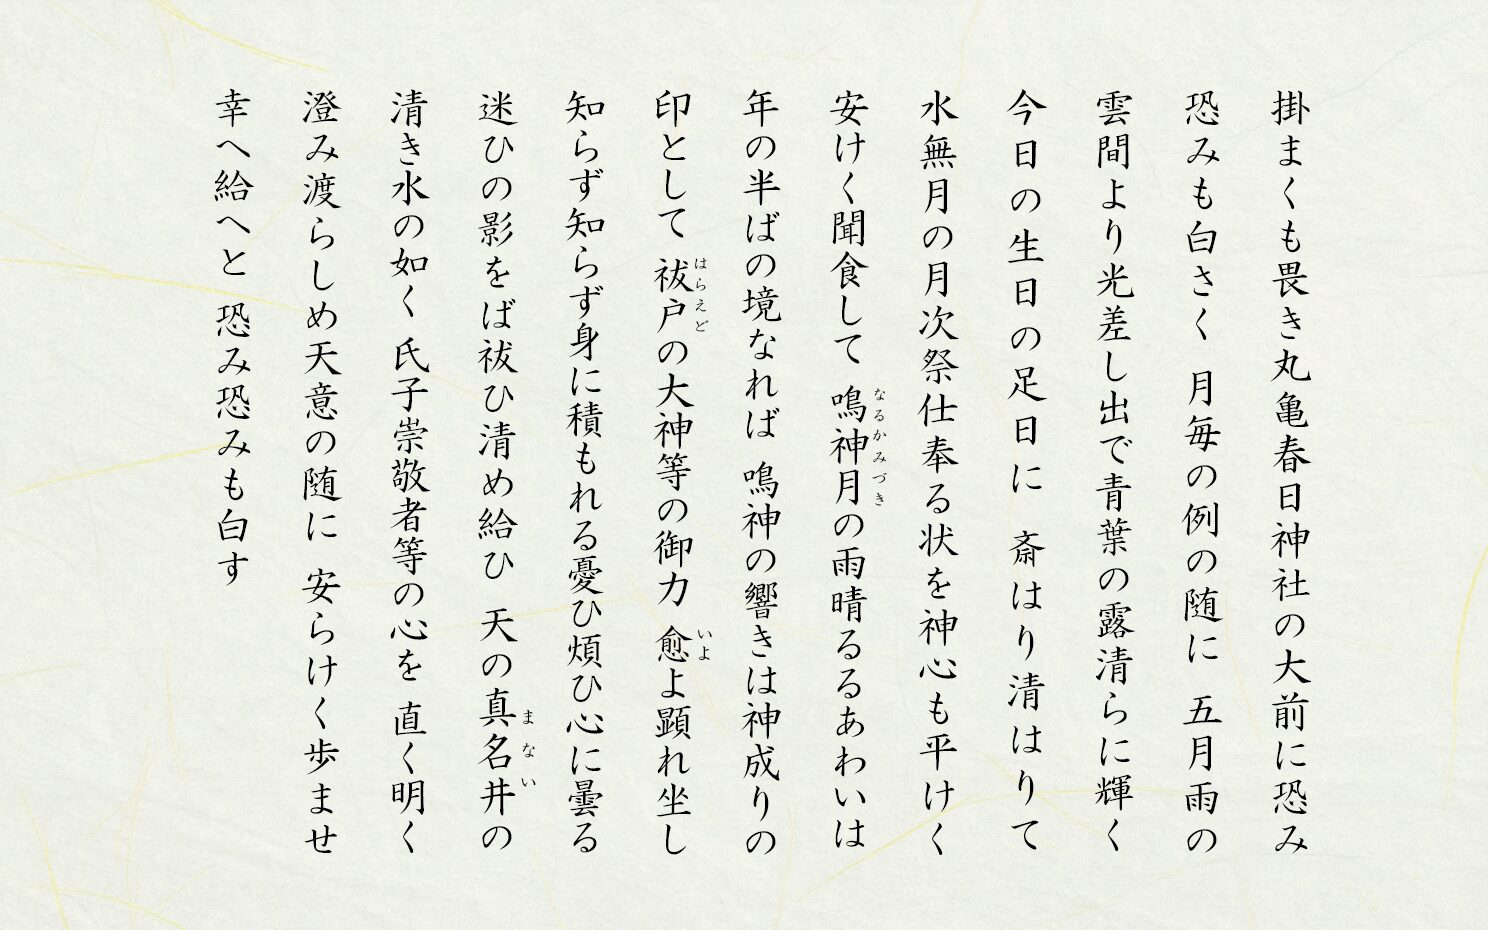 掛まくも畏き丸亀春日神社の大前に恐み
恐みも白さく 月毎の例の随に 五月雨の
雲間より光差し出で青葉の露清らに輝く
今日の生日の足日に 斎はり清はりて
水無月の月次祭仕奉る状を神心も平けく
安けく聞食して 鳴神月の雨晴るるあわいは
なるかみづき
年の半ばの境なれば 鳴神の響きは神成りの
印として 祓戸の大神等の御力 愈よ顕れ坐し
はらえど
いよ
知らず知らず身に積もれる憂ひ煩ひ心に曇る
迷ひの影をば祓ひ清め給ひ 天の真名井の
まない
清き水の如く 氏子崇敬者等の心を 直く明く
澄み渡らしめ天意の随に 安らけく歩ませ
幸へ給へと 恐み恐みも白す